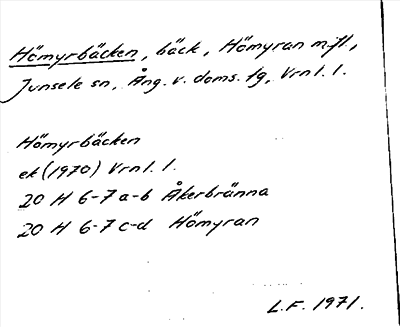 Hömyrbäcken, bäck, Hömyran m.fl.,
Junsele sn, Ång. v. doms. tg, Vrnl. l.
Hömyrbäcken
ek (1970) Vrnl. l.
20 H 6-7 a-b Åkerbränna
20 H 6-7 c-d Hömyran
L.F. 1971.